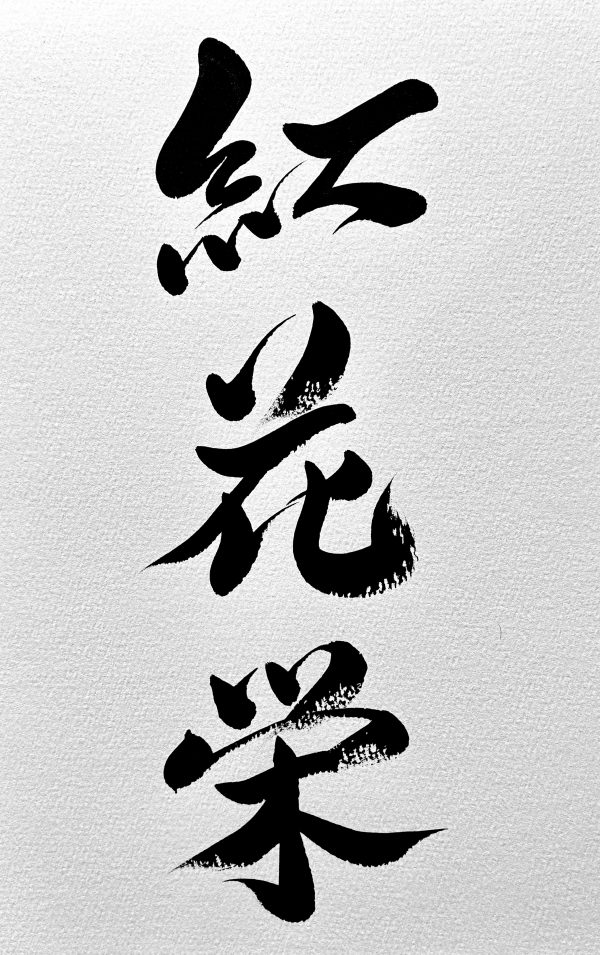 紅花栄